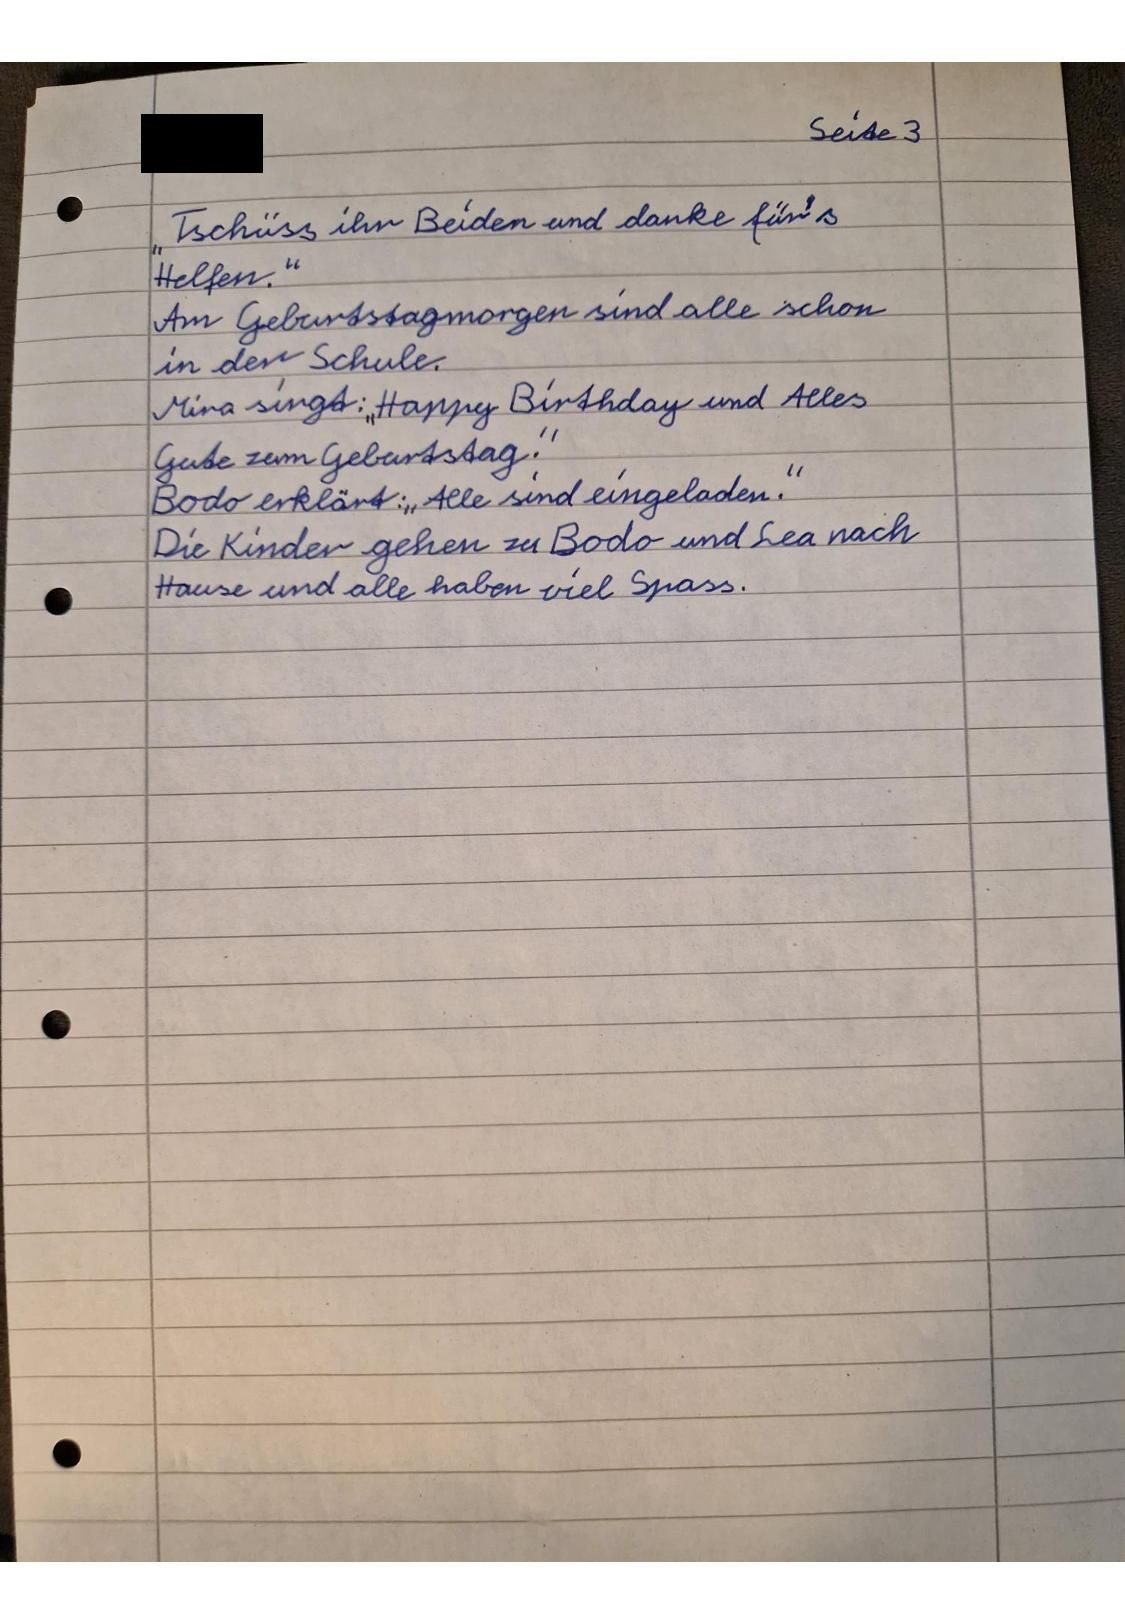 Seite 3
„Tschüss ihr Beiden und danke für's
Helfen.“
Am Geburtstagmorgen sind alle schon
in der Schule.
Mira singt: „Happy Birthday und Alles
Gute zum Geburtstag!“
Bodo erklärt: „Alle sind eingeladen.“
Die Kinder gehen zu Bodo und Lea nach
Hause und alle haben viel Spass.